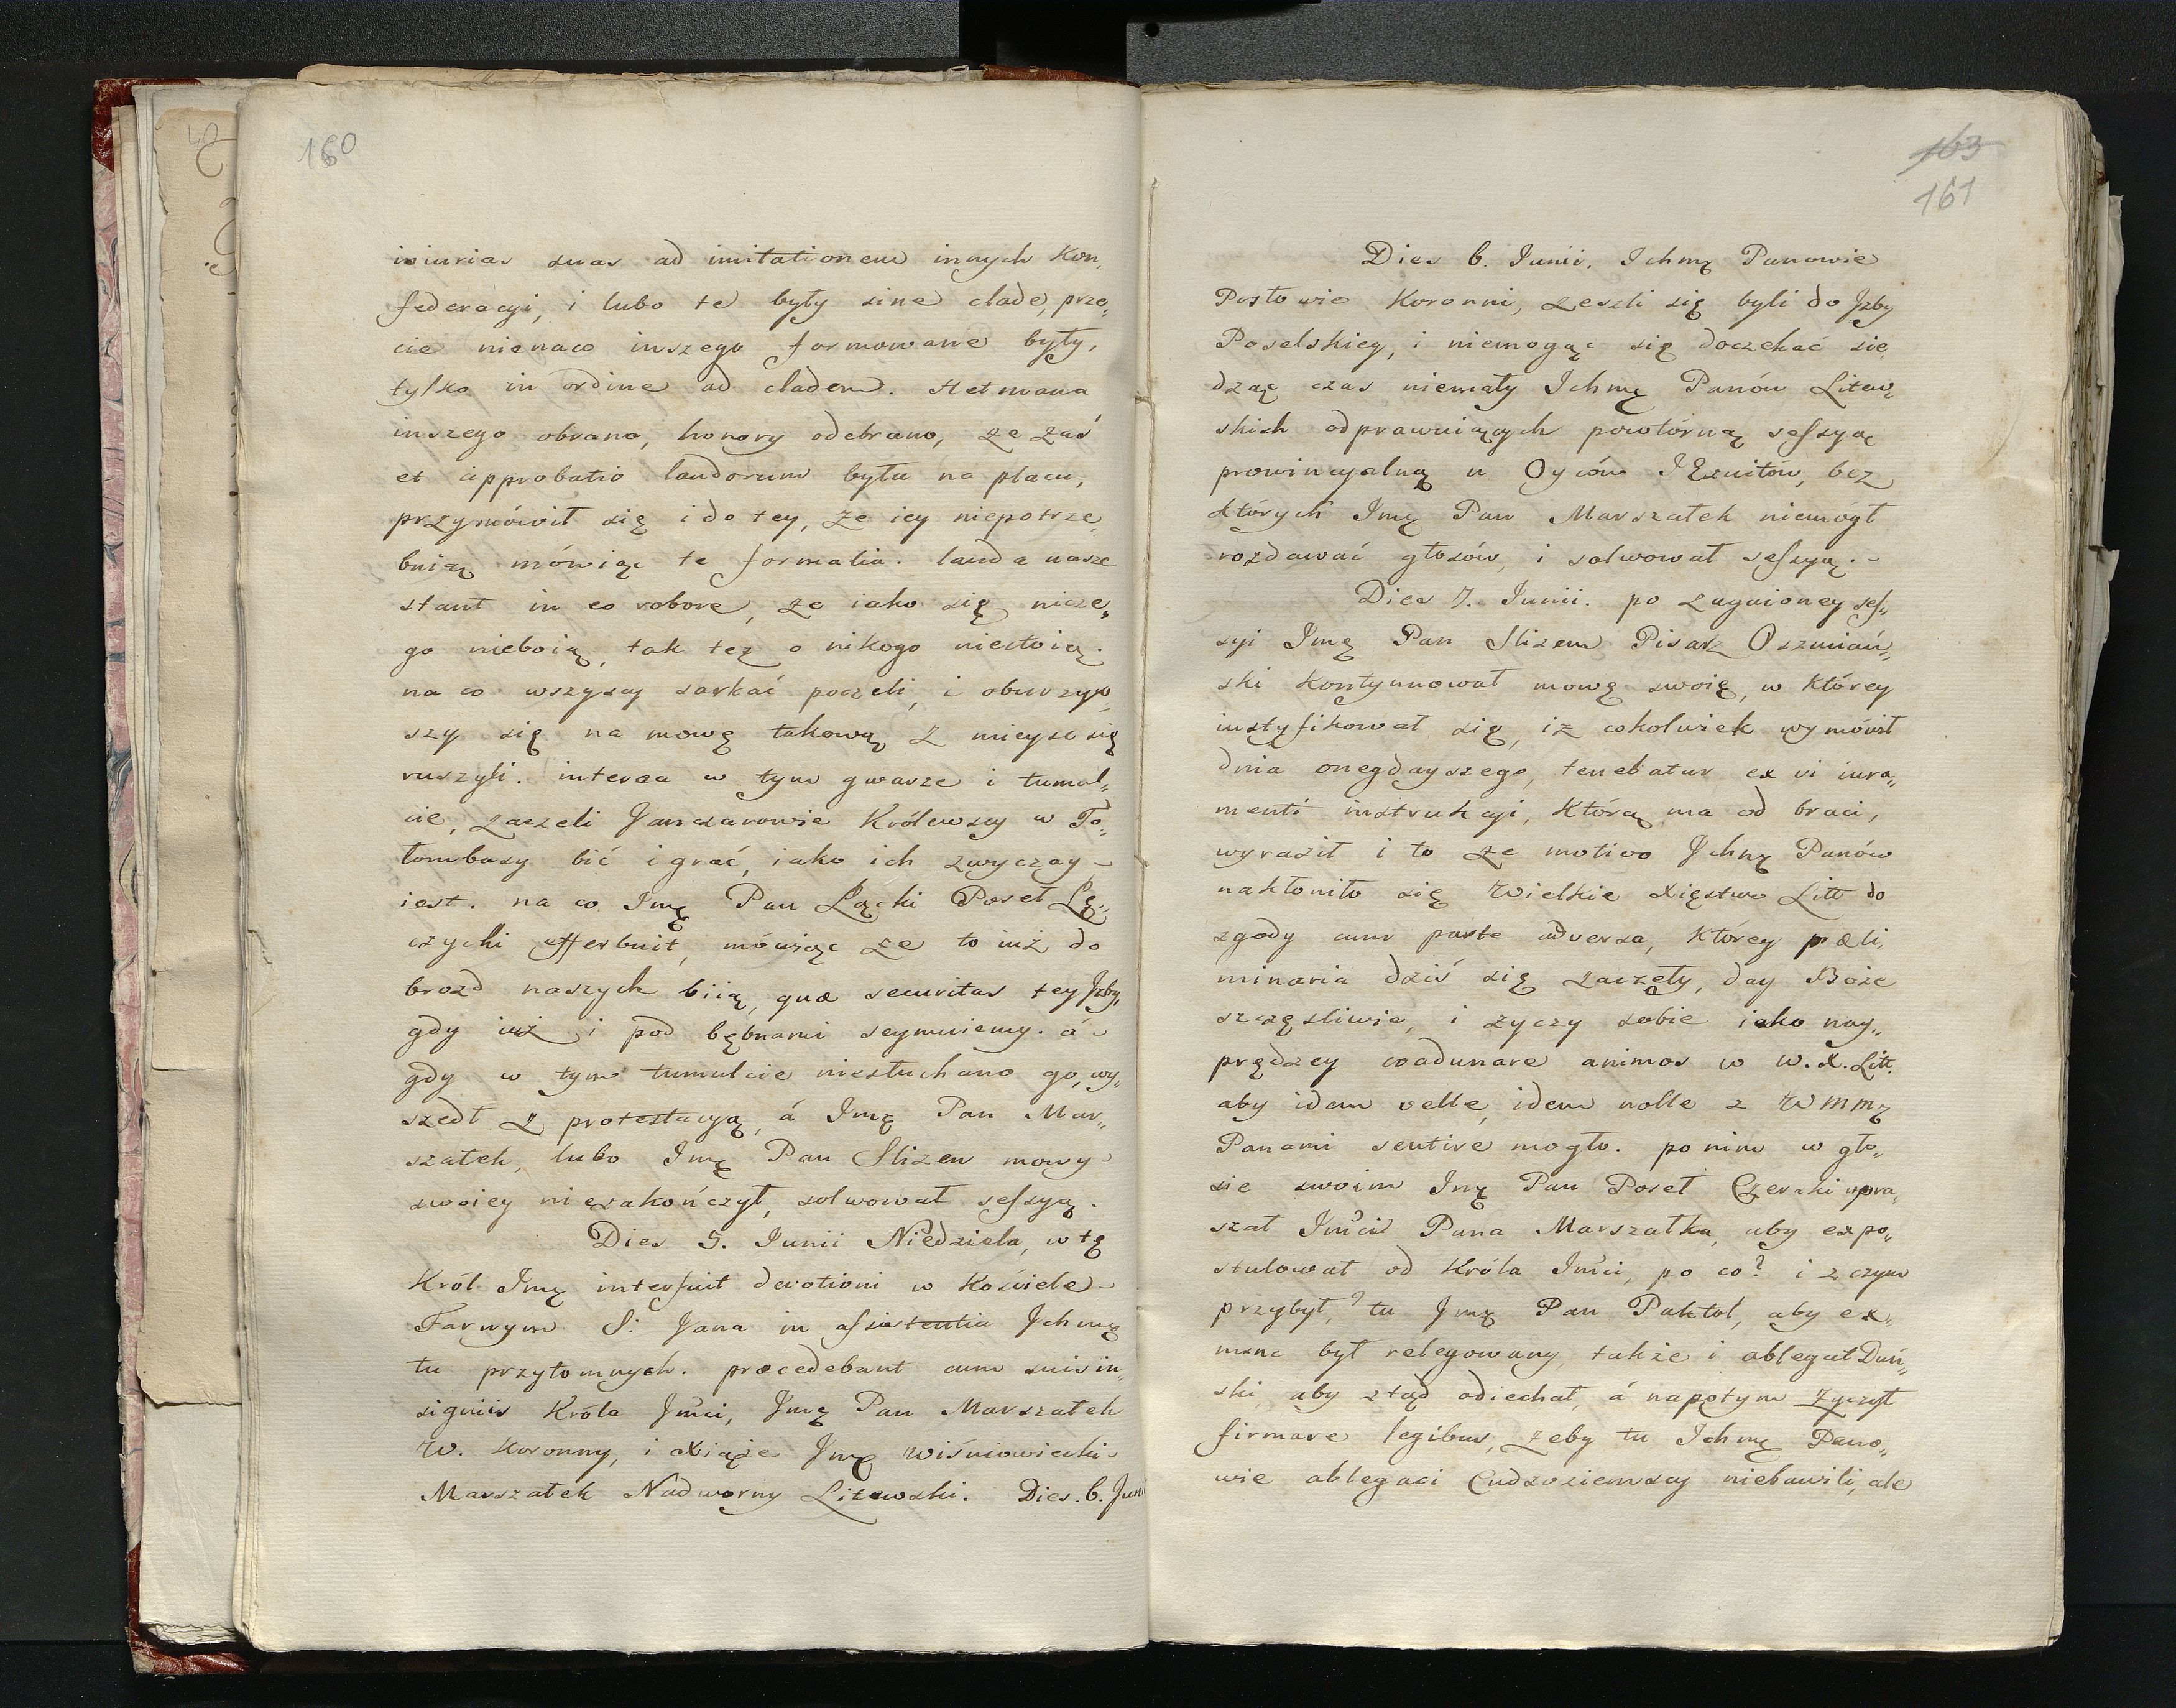 160
iniurias suas ad imitationem innych Kon„
federacyi, i lubo te były sine clade, prze„
cie nienaco inszego formowane były,
tylko in ordine ad cladem. Hetmana
inszego obrano, honory odebrano, że zaś
et approbatio laudorum była na placu,
przymówił się i do tey, że iey niepotrze„
bnią mówiąc te formalia. lauda nasze
stant in eo robore, że iako się nicze„
go nieboią, tak też o nikogo niestoią.
na co wszyscy sarkać poczeli, i oburzyw„
szy się na mowę takową z mieysc się
ruszyli. interea w tym gwarze i tumul„
cie, zaczeli Janczarowie Królewscy w To„
łombasy bić i grać, iako ich zwyczay
iest. na co Jmę Pan Łącki Poseł Łę„
czycki efferbuit, mówiąc że to iuż do
brozd naszych biią, quæ securitas tey Jzby,
gdy iuż i pod bębnami seymuiemy. á
gdy w tym tumulcie niesłuchano go, wy„
szedł z protestacyą, á Jmę Pan Mar„
szałek, lubo Jmę Pan Slizen mowy
swoiey niezakończył, solwował sessyą.
Dies 5. Junii Niedziela, w tę
Król Jmę interfuit devotioni w Kościele
Farnym S: Jana in assistentia Jchmę
tu przytomnych. præcedebant cum suis in„
signiis Króla Jmci, Jmę Pan Marszałek
W. Koronny, i Xiąże Jmę Wiśniowiecki
Marszałek Nadworny Litewski. Dies. 6. Junii
163
161
Dies 6. Junii. Jchmę Panowie
Posłowie Koronni, zeszli się byli do Jzby
Poselskiey, i niemogąc się doczekać sie„
dząc czas niemały Jchmę Panów Litew„
skich odprawuiących powtórną sessyą
prowincyalną u Oyców JEzuitów, bez
których Jmę Pan Marszałek niemógł
rozdawać głosów, i solwował sessyą.
Dies 7. Junii. po zagaioney ses„
syi Jmę Pan Slizem Pisarz Oszmiań„
ski kontynuował mowę swoię, w którey
iustyfikował się, iż cokolwiek wymówił
dnia onegdayszego, tenebatur ex vi iura„
menti instrukcyi, którą ma od braci,
wyraził i to że motivo Jchmę Panów
nakłoniło się Wielkie Xięstwo Litt do
zgody cum parte adversa, którey præli„
minaria dziś się zaczęły, day Boże
szczęsliwie, i życzy sobie iako nay„
prędzey coadunare animos w W. X. Litt.
aby idem velle, idem nolle z Wmmę
Panami sentire mogło. po nim w gło„
sie swoim Jmę Pan Poseł Czerski upra„
szał Jmci Pana Marszałka, aby expo„
stulował od Króla Jmci, po co? i z czym
przybył? tu Jmę Pan Paktol, aby ex„
munc był relegowany, także i ablegat Duń„
ski, aby ztąd odiechał, á napotym życzył
firmare legibus, żeby tu Jchmę Pano„
wie ablegaci Cudzoziemscy niebawili, ale